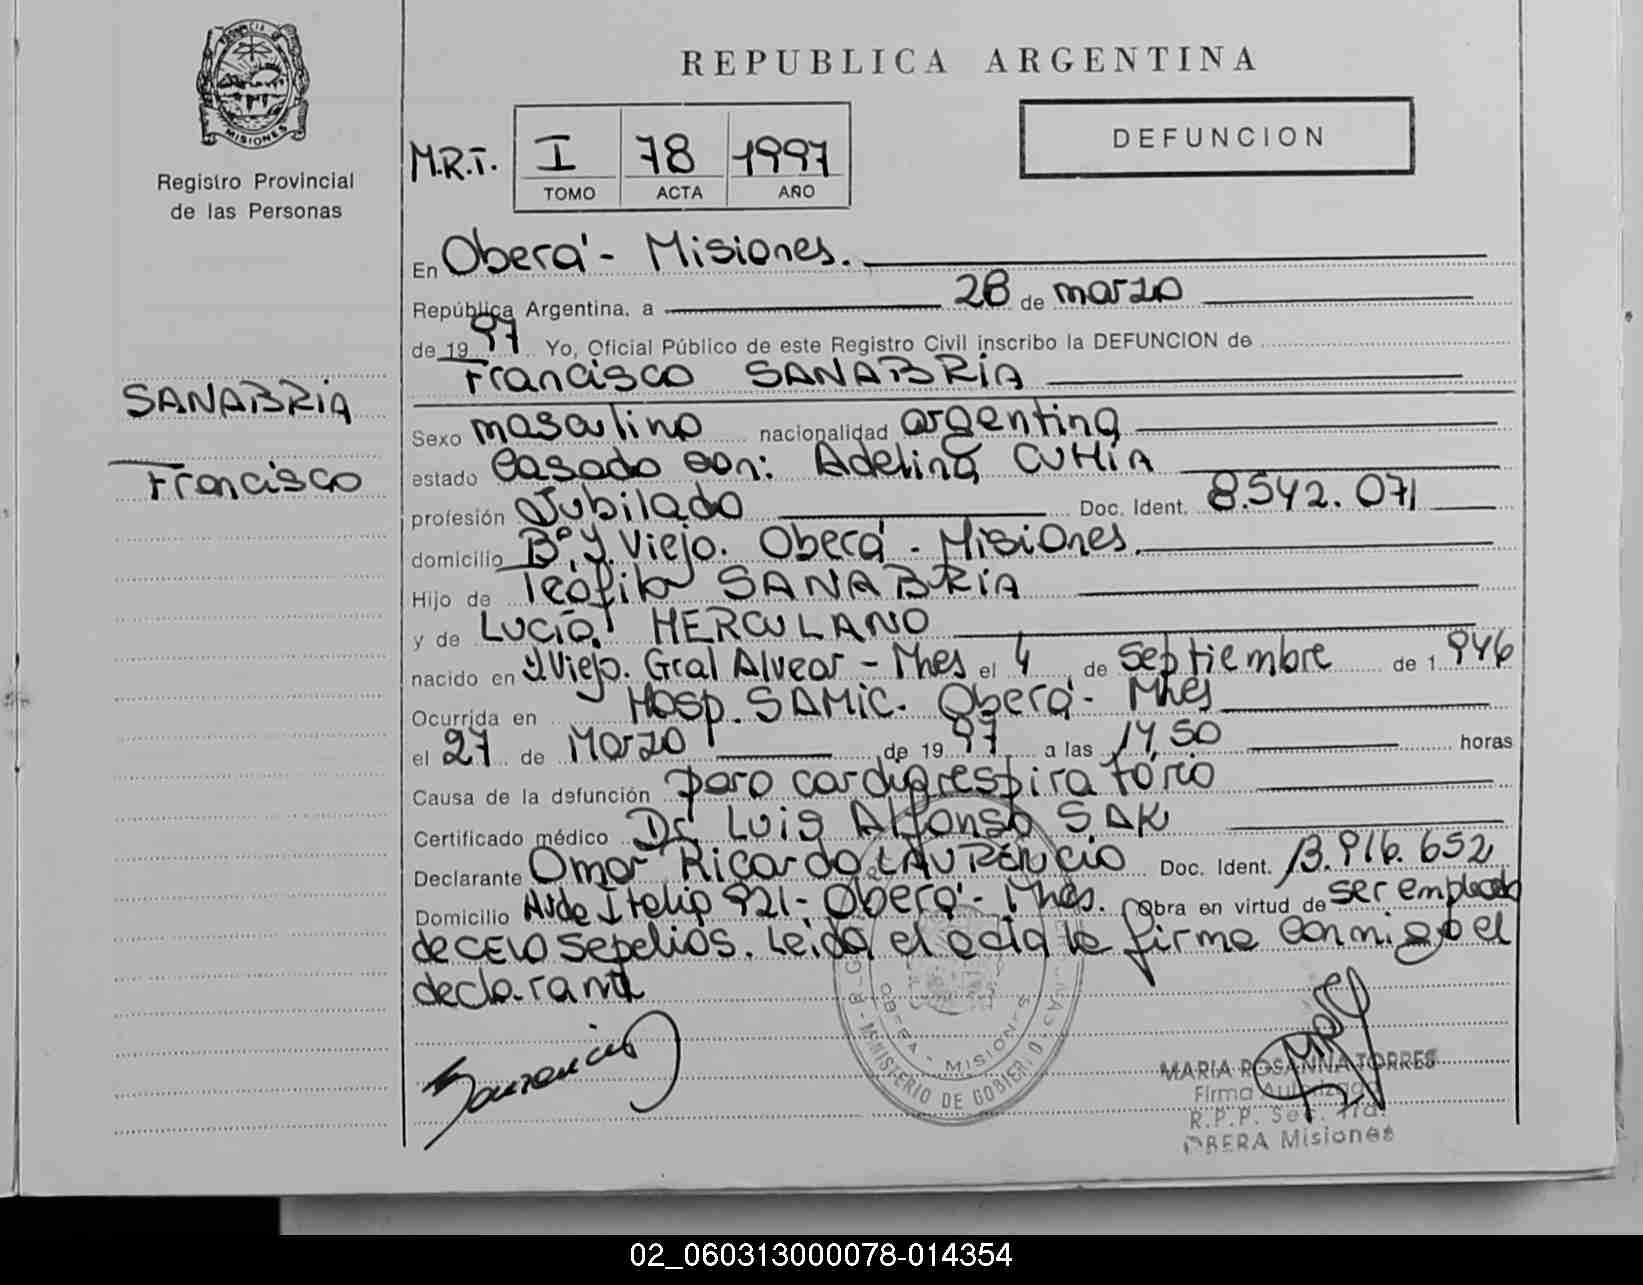 PROVINCIA DE
MISIONES
Registro Provincial
de las Personas
SANABRIA
Francisco
REPUBLICA ARGENTINA
M.R.T. I 78 1997
TOMO ACTA AÑO
DEFUNCION
En Oberá - Misiones.
República Argentina, a 28 de marzo
de 19 97 Yo, Oficial Público de este Registro Civil inscribo la DEFUNCION de
Francisco SANABRIA
Sexo masculino nacionalidad argentina
estado Casado con: Adelina CUHIA
profesión Jubilado Doc. Ident. 8.542.071
domicilio B° Y. Viejo. Oberá - Misiones.
Hijo de Teófilo SANABRIA
y de Lucía HERCULANO
nacido en Y. Viejo. Gral Alvear - Mnes el 4 de Septiembre de 1 946
Ocurrida en Hosp. SAMIC. Oberá - Mnes
el 27 de Marzo de 19 97 a las 14,50 horas
Causa de la defunción paro cardiorespiratório
Certificado médico Dr Luis Alfonso SAK
Declarante Omar Ricardo LAURENCIO Doc. Ident. 13.916.652
Domicilio Avda Italia 921 - Oberá - Mnes. Obra en virtud de ser empleado
de CELO Sepelios. Leida el acta la firma conmigo el
declarante
Laurencio
OBERA - MISIONES
MINISTERIO DE GOBIERNO
MARIA ROSANNA TORRES
Firma
R.P.P.
OBERA Misiones
02_060313000078-014354